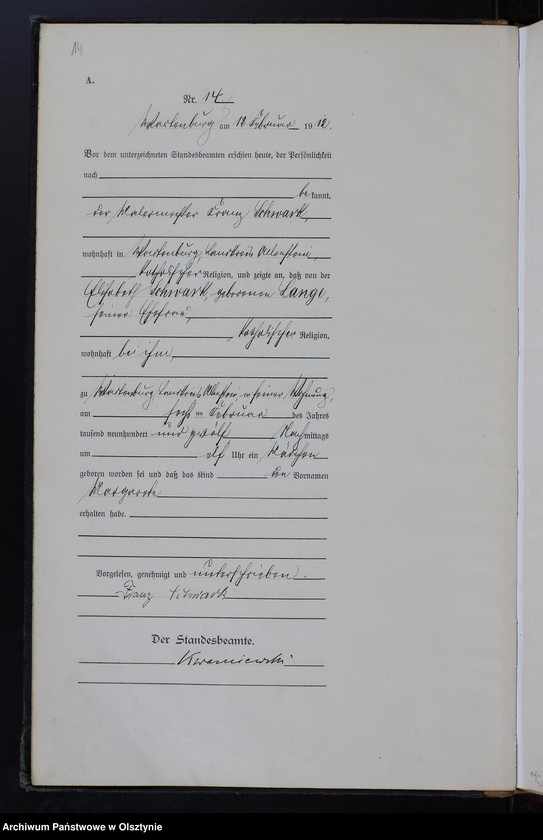 14
A.
Nr. 14
Wartenburg am 12 Februar 1912.
Vor dem unterzeichneten Standesbeamten erschien heute, der Persönlichkeit
nach
bekannt,
der Malermeister Franz Schwark,
wohnhaft in Wartenburg, Landkreis Allenstein,
katholischer Religion, und zeigte an, daß von der
Elisabeth Schwark, geborenen Lange,
seiner Ehefrau,
katholischer Religion,
wohnhaft bei ihm,
zu Wartenburg, Landkreis Allenstein, in seiner Wohnung,
am sechsten Februar des Jahres
tausend neunhundert und zwölf Nachmittags
um elf Uhr ein Mädchen
geboren worden sei und daß das Kind den Vornamen
Margarete
erhalten habe.
Vorgelesen, genehmigt und unterschrieben.
Franz Schwark
Der Standesbeamte.
Archiwum Państwowe w Olsztynie